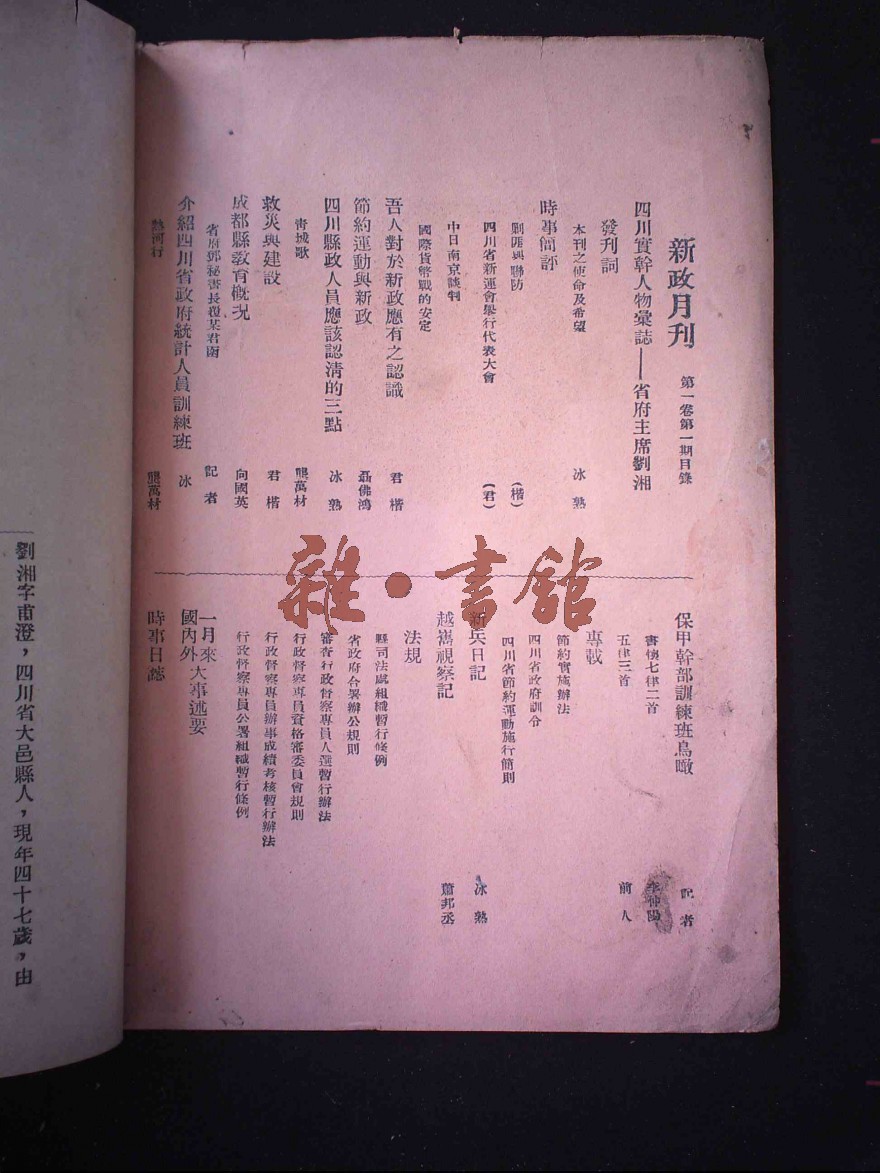 新政月刊 第一卷第一期目錄
四川實幹人物彙誌——省府主席劉湘
發刊詞
本刊之使命及希望 冰熟
時事簡評
剿匪與聯防 (楷)
四川省新運會舉行代表大會 (君)
中日南京談判
國際貨幣戰的安定
吾人對於新政應有之認識 君楷
節約運動與新政 聶佛鴻
四川縣政人員應該認清的三點 冰熟
青城歌 龔萬材
救災與建設 君楷
成都縣教育概况 向國英
省府鄧祕書長覆某君函 記者
介紹四川省政府統計人員訓練班 冰
熱河行 龔萬材
保甲幹部訓練班鳥瞰 記者
書懷七律二首 李仲陽
五律三首 前人
專載
節約實施辦法
四川省政府訓令
四川省節約運動施行簡則
新兵日記 冰熟
越嶲視察記 蕭邦丞
法規
縣司法處組織暫行條例
省政府合署辦公規則
審查行政督察專員人選暫行辦法
行政督察專員資格審委員會規則
行政督察專員辦事成績考核暫行辦法
行政督察專員公署組織暫行條例
一月來國內外大事述要
時事日誌
劉湘字甫澄，四川省大邑縣人，現年四十七歲，由
雜·書館